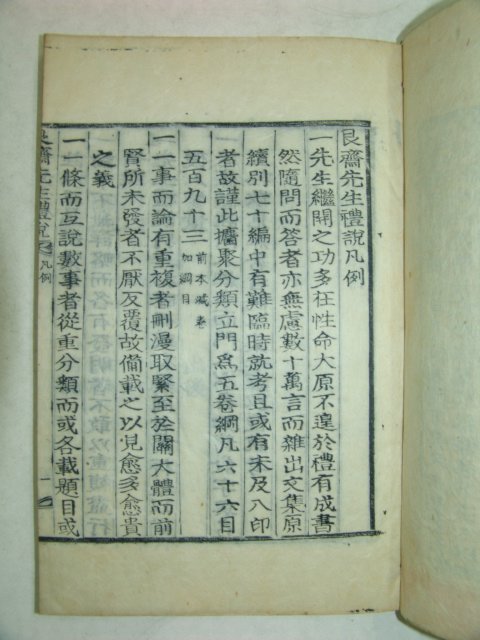 艮齋先生禮說凡例
一先生繼開之功多在性命大原不遑於禮有成書
然隨問而答者亦無慮數十萬言而雜出文集原
續別七十編中有難臨時就考且或有未及入印
者故謹此擴聚分類立門爲五卷綱凡六十六目
五百九十三
前本減卷
加綱目
一一事而論有重複者刪漫取緊至於關大體而前
賢所未發者不厭反覆故備載之以見愈多愈貴
之義
一一條而互說數事者從重分類而或各載題目或
艮齋先生禮說
凡例
一